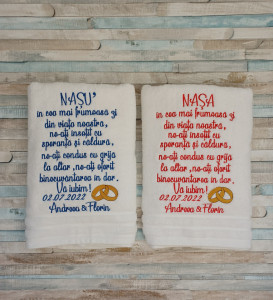 NAȘU'
in cea mai frumoasă zi
din viața noastră,
ne-ați însoțit cu
speranță și căldură,
ne-ați condus cu grija
la altar ,ne-ați oferit
binecuvântarea in dar.
Va iubim !
02.07.2022
Andreea & Florin
NAȘA
in cea mai frumoasă zi
din viața noastră,
ne-ați însoțit cu
speranță și căldură,
ne-ați condus cu grija
la altar ,ne-ați oferit
binecuvântarea in dar.
Va iubim !
02.07.2022
Andreea & Florin